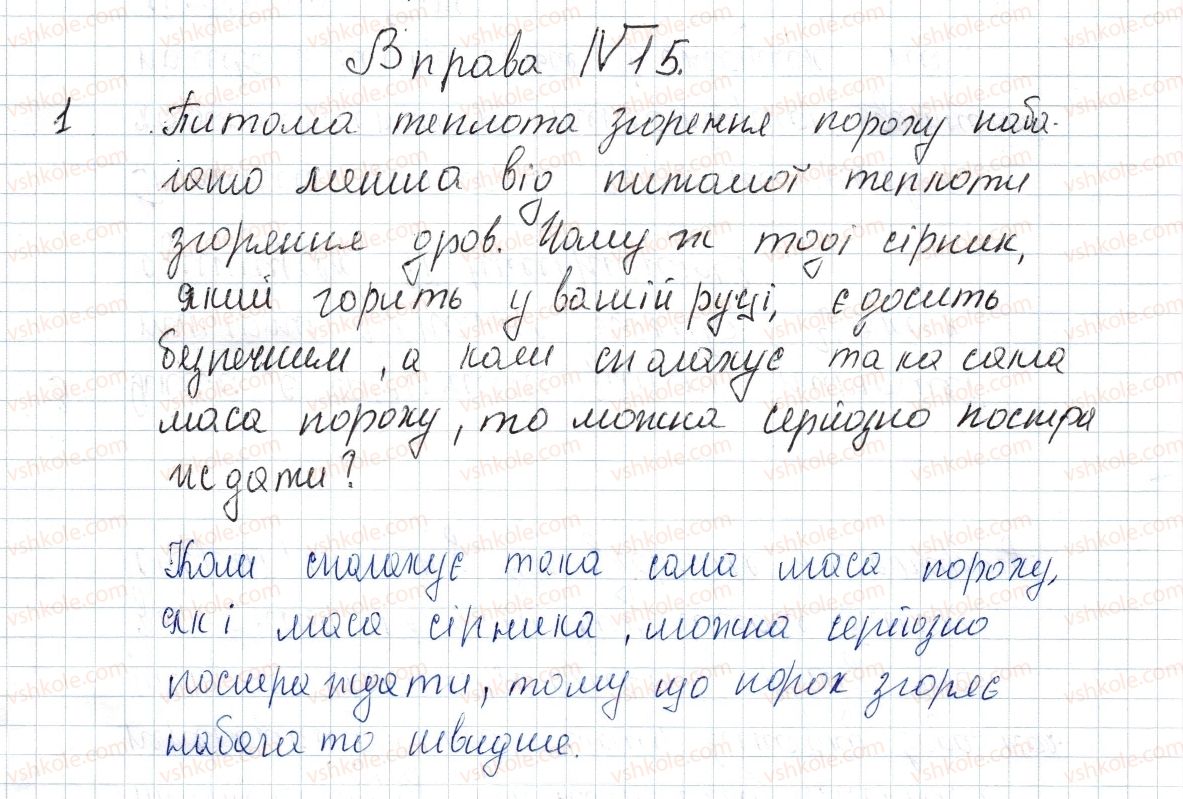 Вправа №15.
1 Питома теплота згорення пороху наба-
гато менша від питомої теплоти
згоряння дров. Чому ж тоді сірник,
який горить у вашій руці, є досить
безпечним, а коли спалахує така сама
маса пороху, то можна серйозно постра
ждати?
Коли спалахує така сама маса пороху,
як і маса сірника, можна серйозно
постраждати, тому що порох згоряє
набагато швидше.